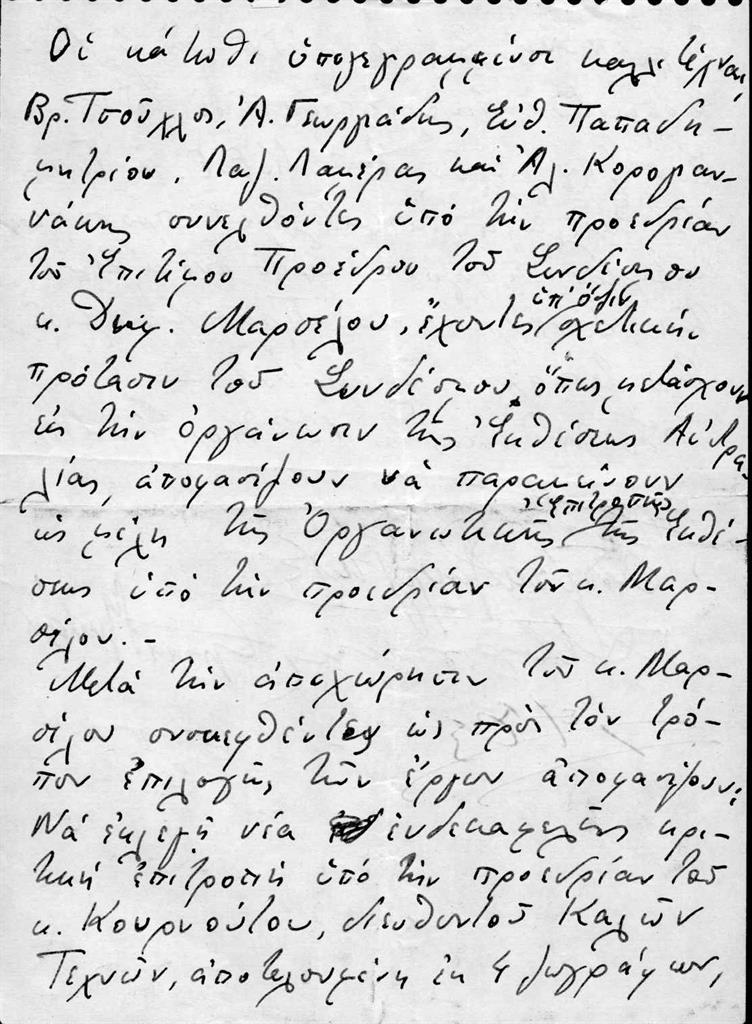 Οἱ κάτωθι ὑπογεγραμμένοι καλλιτέχναι
Βρ. Τσοῦχλος, Ἀ. Γεωργιάδης, Εὐθ. Παπαδη-
μητρίου, Λαζ. Λαμέρας καὶ Ἀλ. Κορογιαν-
νάκης συνελθόντες ὑπό τὴν προεδρίαν
τοῦ Ἐπιτίμου Προέδρου τοῦ Συνδέσμου
κ. Δημ. Μαρσέλου, ἔχοντες ὑπ' ὄψιν σχετικήν
πρότασιν τοῦ Συνδέσμου ὅπως μετάσχουν
εἰς τὴν ὀργάνωσιν τῆς Ἐκθέσεως Αὐστρα-
λίας, ἀποφασίζουν νὰ παραμείνουν
ὡς μέλη τῆς Ὀργανωτικῆς ἐπιτροπῆς τῆς Ἐκθέ-
σεως ὑπό τὴν προεδρίαν τοῦ κ. Μαρ-
σέλου.-
Μετά τὴν ἀποχώρησιν τοῦ κ. Μαρ-
σέλου συσκεφθέντες ὡς πρός τόν τρό-
πον ἐπιλογῆς τῶν ἔργων ἀποφασίζουν:
Νά ἐκλεγῇ νέα ἑνδεκαμελής κρι-
τική ἐπιτροπή ὑπό τὴν προεδρίαν τοῦ
κ. Κουρνούτου, διευθυντοῦ Καλῶν
Τεχνῶν, ἀποτελουμένη ἐκ 4 ζωγράφων,